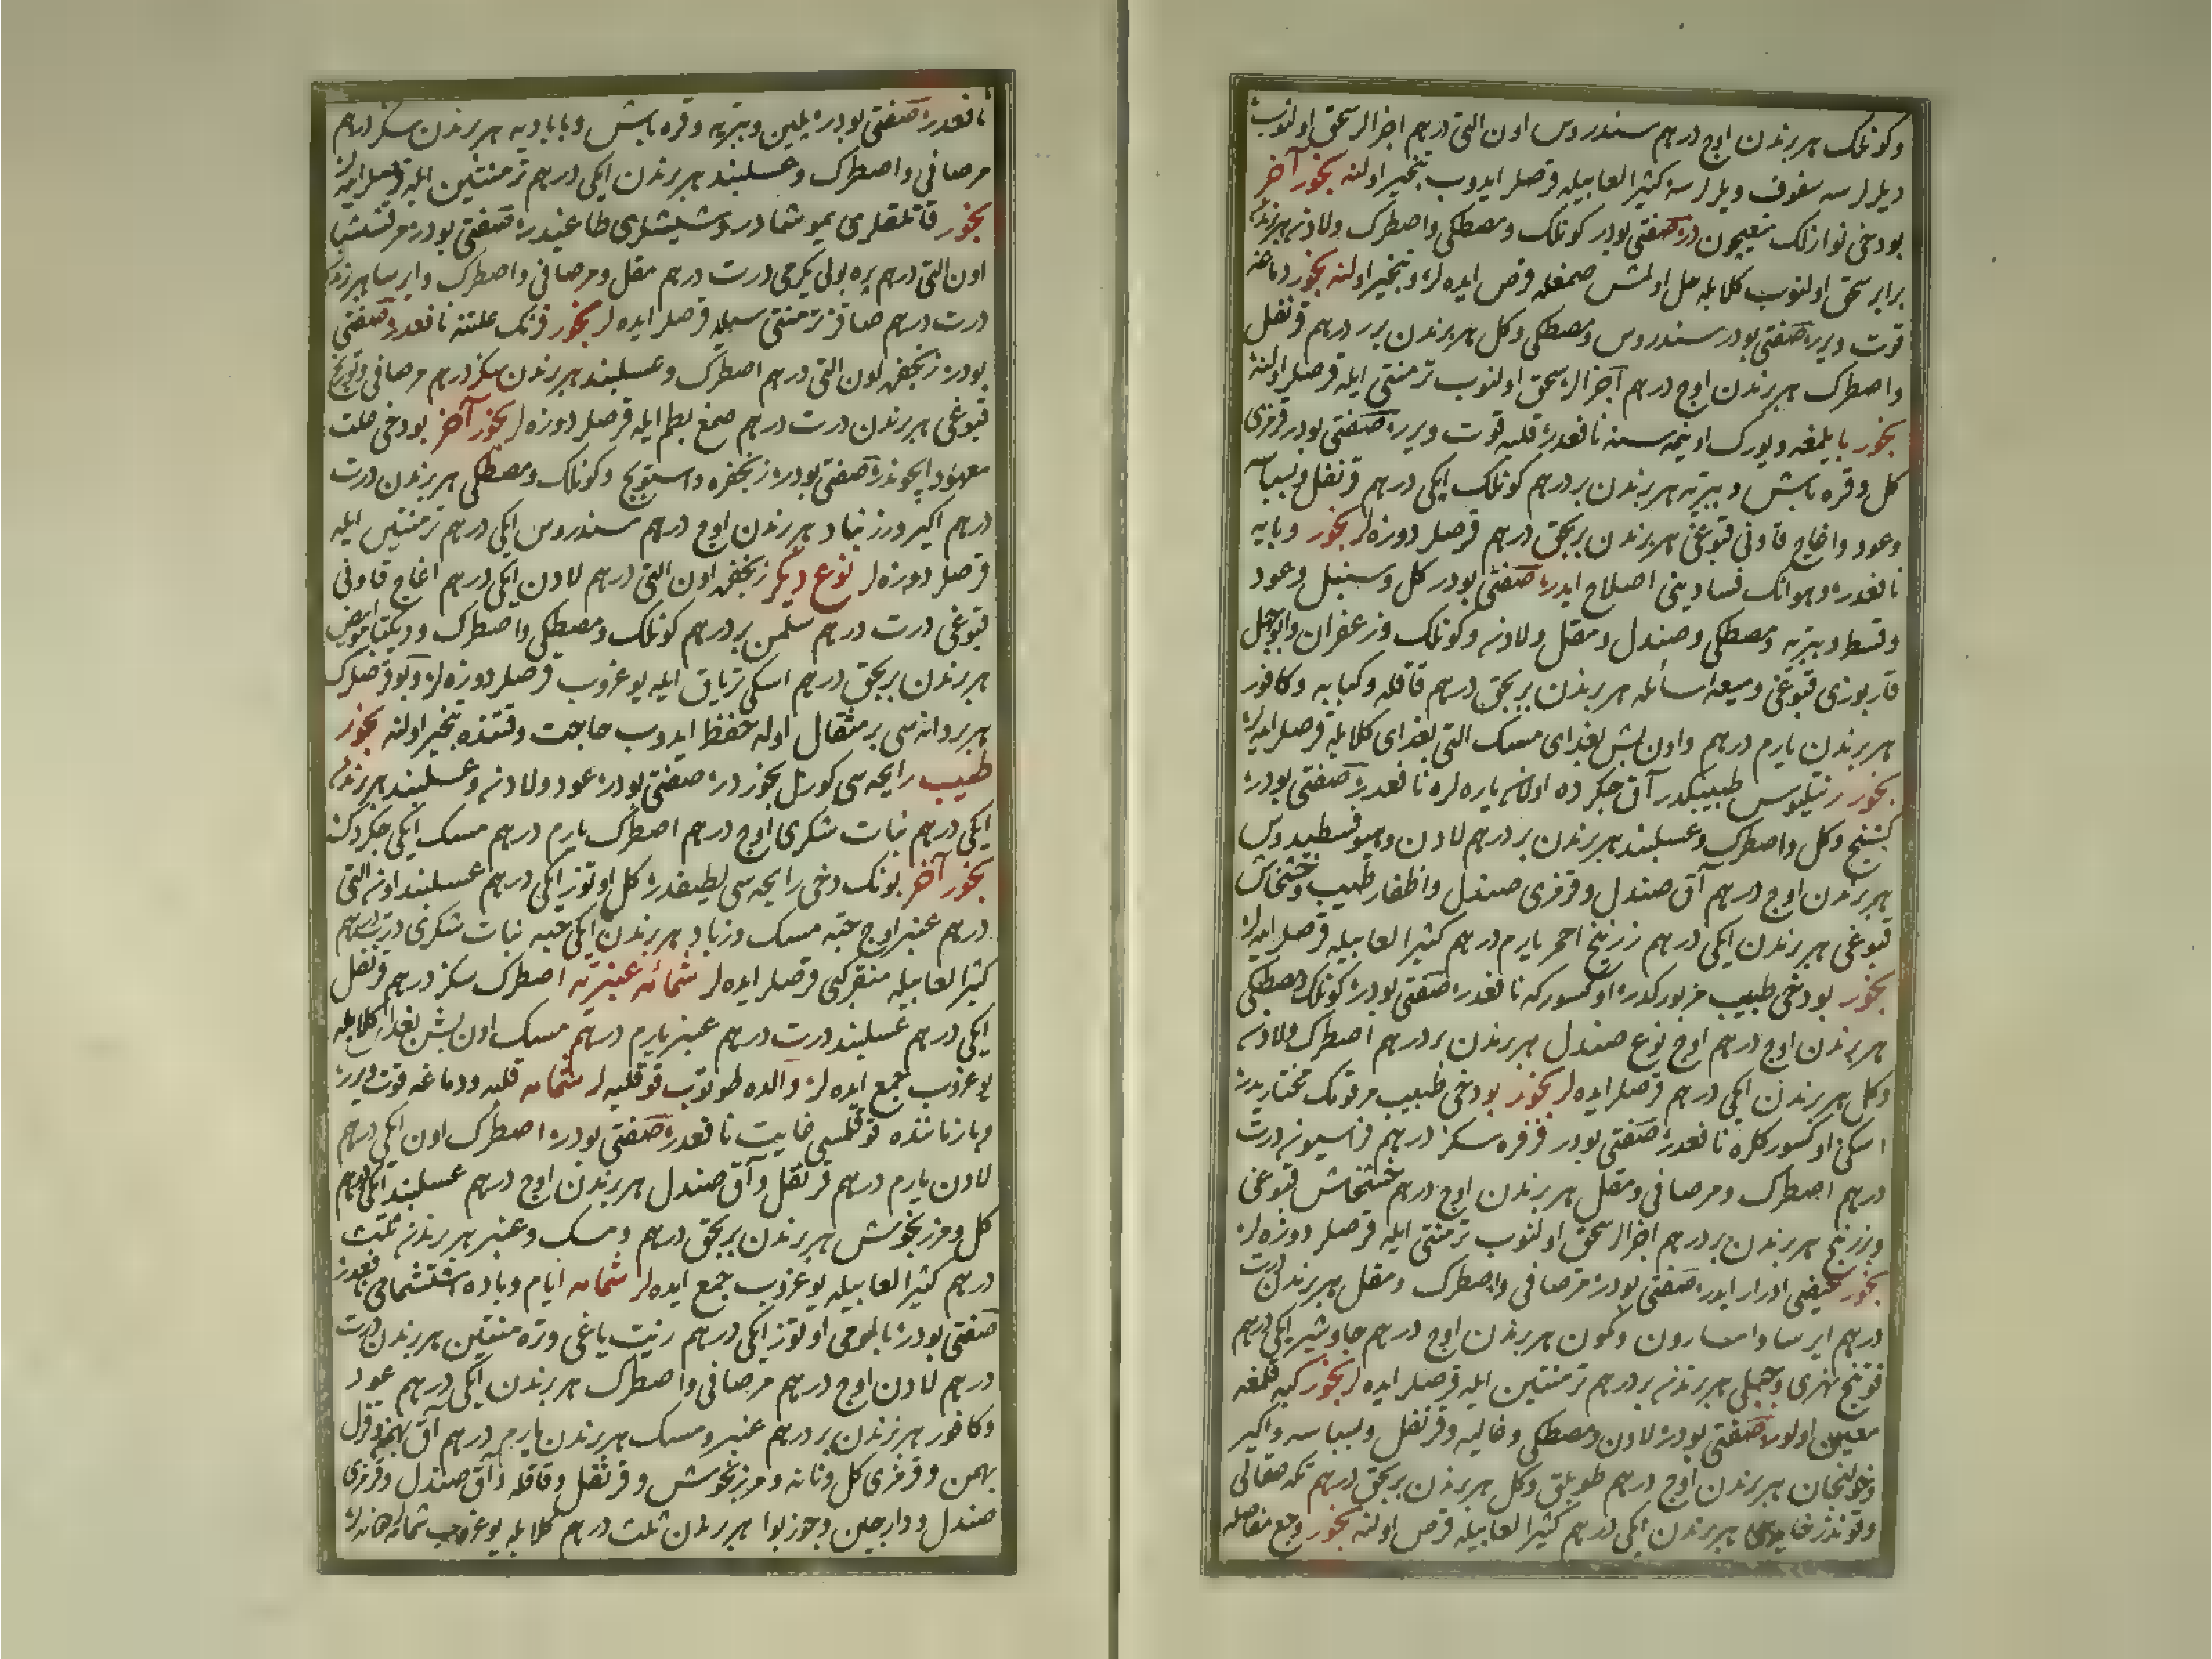 وكونلك هر برندن اوج درهم سندروس اون التی درهم اجزالر سحق اولنوب
دیلرلرسه سفوف ویلرلرسه كثیرا لعابیله قرصلر ایدوب تبخیر اولنه بخور آخر
بودخی نوازلك منعیچون در صفتی بودر كونلك ومصطكی واصطرك ولادنه هر برندن
برابر سحق اولنوب كلابله حل اولمش صمغله قرص ایده لر وتبخیر اولنه بخور دماغه
قوت ویرر صفتی بودر سندروس ومصطكی وكل هر برندن برر درهم قرنفل
واصطرك هر برندن اوج درهم اجزالر سحق اولنوب ترمنتی ایله قرصلر اولنه
بخور بایلمغه ویورك اوینمه سنه نافعدر قلبه قوت ویرر صفتی بودر قرمزی
كل وقره باش وبیزیه هر برندن بر درهم كونلك ایكی درهم قرنفل وبسباسه
وعود واغاج قاونی قبوغی هر برندن بر بچق درهم قرصلر دوزه لر بخور وبایه
نافعدر وهوانك فسادینی اصلاح ایدر صفتی بودر كل وسنبل وعود
وقسط وبیزیه ومصطكی وصندل ومقل ولادنه وكونلك وزعفران
قاربوزی قبوغی ومیعه سائله هر برندن بر بچق درهم قاقله وكبابه وكافور
هر برندن یارم درهم واون بش بغدای مسك التی بغدای كلابله قرصلر ایده لر
بخور طبیبكدر آق جكرده اولان یاره لره نافعدر صفتی بودر
كشنج وكل واصطرك وعسلبند هر برندن بر درهم لادن وهیوقسطیدوس
هر برندن اوج درهم آق صندل وقرمزی صندل واظفار طیب وخشخاش
قبوغی هر برندن ایكی درهم زرنیخ احمر یارم درهم كثیرا لعابیله قرصلر ایده لر
بخور بودخی طبیب مزبوركدر اوكسوركه نافعدر صفتی بودر كونلك ومصطكی
هر برندن اوج درهم اوج نوع صندل هر برندن بر درهم اصطرك ولادنه
وكل هر برندن ایكی درهم قرصلر ایده لر بخور بودخی طبیب مرقومك مختاریدر
اسكی اوكسوركلره نافعدر صفتی بودر قزفره سكز درهم فراسیونه درت
درهم اصطرك ومرصافی ومقل هر برندن اوج درهم خشخاش قبوغی
وزرنیخ هر برندن بر درهم اجزالر سحق اولنوب ترمنتی ایله قرصلر دوزه لر
بخور حیضی ادرار ایدر صفتی بودر مرصافی واصطرك ومقل هر برندن درت
درهم ایرسا واسارون وكمون هر برندن اوج درهم جاوشیر ایكی درهم
فوتنج نهری وجبلی هر برندن بر درهم ترمنتین ایله قرصلر ایده لر بخور كبه قلمغه
معین اولور صفتی بودر لادن ومصطكی وغالیه وقرنفل وبسباسه واكیر
وخولنجان هر برندن اوج درهم طوبلق وكل هر برندن بر بچق درهم تكه صقالی
وقوندز خایه سی هر برندن ایكی درهم كثیرا لعابیله قرص اولنه بخور وجع مفاصله
نافعدر صفتی بودر یلمین وبیزیه وقره باش وبابادیه هر برندن سكز درهم
مرصافی واصطرك وعسلبند هر برندن ایكی درهم ترمنتین ایله قرصلر ایده لر
بخور قاتلقلری یومشادر وشیشلری طاغیدر صفتی بودر مرقشیشا
اون التی درهم پره بولی یكرمی درت درهم مقل ومرصافی واصطرك وایرسا هر برندن
درت درهم صاقز ترمنتی سیله قرصلر ایده لر بخور فرنك علتنه نافعدر وصفتی
بودر زنجفره اون التی درهم اصطرك وعسلبند هر برندن سكز درهم مرصافی وتورنج
قبوغی هر برندن درت درهم صمغ بطم ایله قرصلر دوزه لر بخور آخر بودخی علت
معهوده ایچوندر صفتی بودر زنجفره واستوبج وكونلك ومصطكی هر برندن درت
درهم اكیر وزرنباد هر برندن اوج درهم سندروس ایكی درهم ترمنتین ایله
قرصلر دوزه لر نوع دیگر زنجفره اون التی درهم لادن ایكی درهم اغاج قاونی
قبوغی درت درهم سلمن بر درهم كونلك ومصطكی واصطرك ودیكتامو ابیض
هر برندن بر بچق درهم اسكی تریاق ایله یوغروب قرصلر دوزه لر وبو قرصلرك
هر بر دانه سی بر مثقال اوله حفظ ایدوب حاجت وقتنده تبخیر اولنه بخور
طیب رایحه سی كوزل بخوردر صفتی بودر عود ولادنه وعسلبند هر برندن
ایكی درهم نبات شكری اوج درهم اصطرك یارم درهم مسك ایكی جكردك
بخور آخر بونك دخی رایحه سی لطیفدر كل اوتوز ایكی درهم عسلبند اونه التی
درهم عنبر اوج حبه مسك وزباد هر برندن ایكی حبه نبات شكری درت درهم
كثیرا لعابیله منقركبی قرصلر ایده لر شمامه عنبریه اصطرك سكز درهم قرنفل
ایكی درهم عسلبند درت درهم عنبر یارم درهم مسك اون بش بغدای كلابله
یوغروب جمع ایده لر والده طوتوب قوقلیه لر شمامه قلبه ودماغه قوت ویرر
وباو زماننده قوقلمسی غایت نافعدر صفتی بودر اصطرك اون ایكی درهم
لادن یارم درهم قرنفل وآق صندل هر برندن اوج درهم عسلبند ایكی درهم
كل ومرزنجوش هر برندن بر بچق درهم ومسك وعنبر هر برندن ثلث
درهم كثیرا لعابیله یوغروب جمع ایده لر شمامه ایام وباده استشمامی نافعدر
صفتی بودر بالمومی اوتوز ایكی درهم زیت یاغی وتره منتین هر برندن درت
درهم لادن اوج درهم مرصافی واصطرك هر برندن ایكی درهم عود
وكافور هر برندن بر درهم عنبر ومسك هر برندن یارم درهم آق بهمن وقزل
بهمن وقرمزی كل ونانه ومرزنجوش وقرنفل وقاقله وآق صندل وقرمزی
صندل ودارچین وجوزبوا هر برندن ثلث درهم كلابله یوغروب شمامه